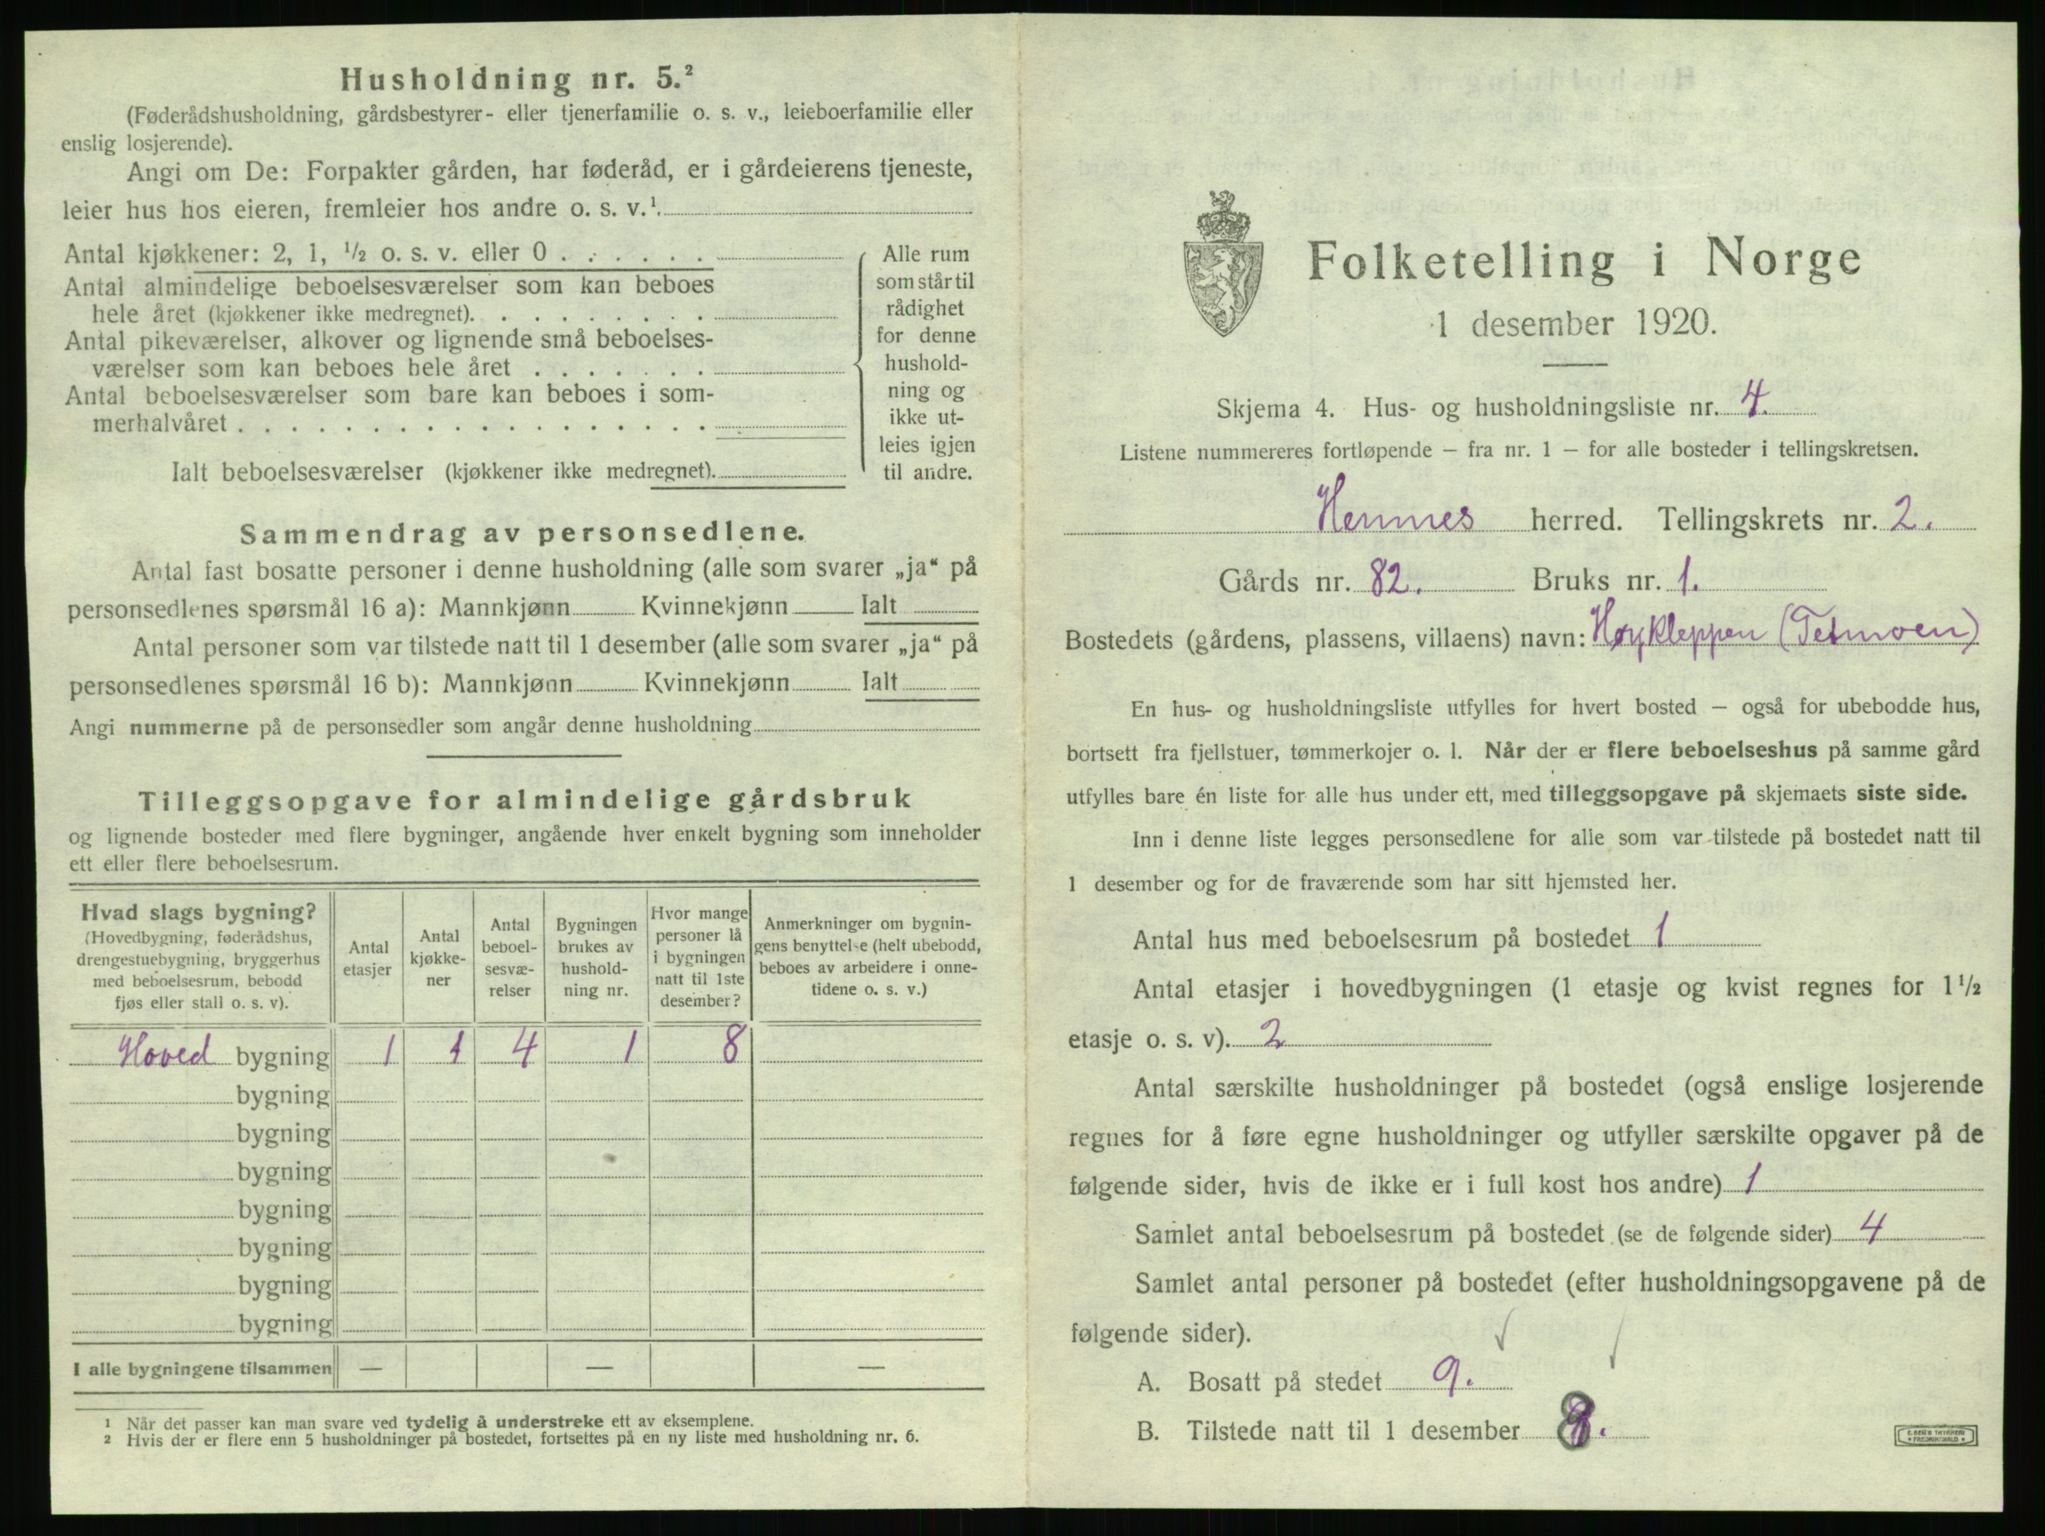 Husholdning nr. 5.²
(Føderådshusholdning, gårdsbestyrer- eller tjenerfamilie o. s. v., leieboerfamilie eller
enslig losjerende).
Angi om De: Forpakter gården, har føderåd, er i gårdeierens tjeneste,
leier hus hos eieren, fremleier hos andre o. s. v.¹
Antal kjøkkener: 2, 1, ½ o. s. v. eller 0 . . . . . .
Antal almindelige beboelsesværelser som kan beboes
hele året (kjøkkener ikke medregnet). . . . . . . . .
Antal pikeværelser, alkover og lignende små beboelses-
værelser som kan beboes hele året . . . . . . .
Antal beboelsesværelser som bare kan beboes i som-
merhalvåret . . . . . . . . . . . . . . . . . .
Ialt beboelsesværelser (kjøkkener ikke medregnet).
Alle rum
som står til
rådighet
for denne
hushold-
ning og
ikke ut-
leies igjen
til andre.
Sammendrag av personsedlene.
Antal fast bosatte personer i denne husholdning (alle som svarer „ja“ på
personsedlenes spørsmål 16 a): Mannkjønn Kvinnekjønn Ialt
Antal personer som var tilstede natt til 1 desember (alle som svarer „ja“ på
personsedlenes spørsmål 16 b): Mannkjønn Kvinnekjønn Ialt
Angi nummerne på de personsedler som angår denne husholdning
Tilleggsopgave for almindelige gårdsbruk
og lignende bosteder med flere bygninger, angående hver enkelt bygning som inneholder
ett eller flere beboelsesrum.
Hvad slags bygning?
(Hovedbygning, føderådshus,
drengestuebygning, bryggerhus
med beboelsesrum, bebodd
fjøs eller stall o. s. v).
Antal
etasjer
Antal
kjøkke-
ner
Antal
beboel-
sesvæ-
relser
Bygningen
brukes av
hushold-
ning nr.
Hvor mange
personer lå
i bygningen
natt til 1ste
desember?
Anmerkninger om bygnin-
gens benyttelse (helt ubebodd,
beboes av arbeidere i onne-
tidene o. s. v.)
Hoved bygning 1 1 4 1 8
bygning
bygning
bygning
bygning
bygning
bygning
bygning
I alle bygningene tilsammen — — —
¹ Når det passer kan man svare ved tydelig å understreke ett av eksemplene.
² Hvis der er flere enn 5 husholdninger på bostedet, fortsettes på en ny liste med husholdning nr. 6.
Folketelling i Norge
1 desember 1920.
Skjema 4. Hus- og husholdningsliste nr. 4.
Listene nummereres fortløpende – fra nr. 1 – for alle bosteder i tellingskretsen.
Hemnes herred. Tellingskrets nr. 2.
Gårds nr. 82. Bruks nr. 1.
Bostedets (gårdens, plassens, villaens) navn: Høykleppen (Tetmoen)
En hus- og husholdningsliste utfylles for hvert bosted – også for ubebodde hus,
bortsett fra fjellstuer, tømmerkojer o. l. Når der er flere beboelseshus på samme gård
utfylles bare én liste for alle hus under ett, med tilleggsopgave på skjemaets siste side.
Inn i denne liste legges personsedlene for alle som var tilstede på bostedet natt til
1 desember og for de fraværende som har sitt hjemsted her.
Antal hus med beboelsesrum på bostedet 1
Antal etasjer i hovedbygningen (1 etasje og kvist regnes for 1½
etasje o. s. v). 2
Antal særskilte husholdninger på bostedet (også enslige losjerende
regnes for å føre egne husholdninger og utfyller særskilte opgaver på de
følgende sider, hvis de ikke er i full kost hos andre) 1
Samlet antal beboelsesrum på bostedet (se de følgende sider) 4
Samlet antal personer på bostedet (efter husholdningsopgavene på de
følgende sider).
A. Bosatt på stedet 9.
B. Tilstede natt til 1 desember 8.